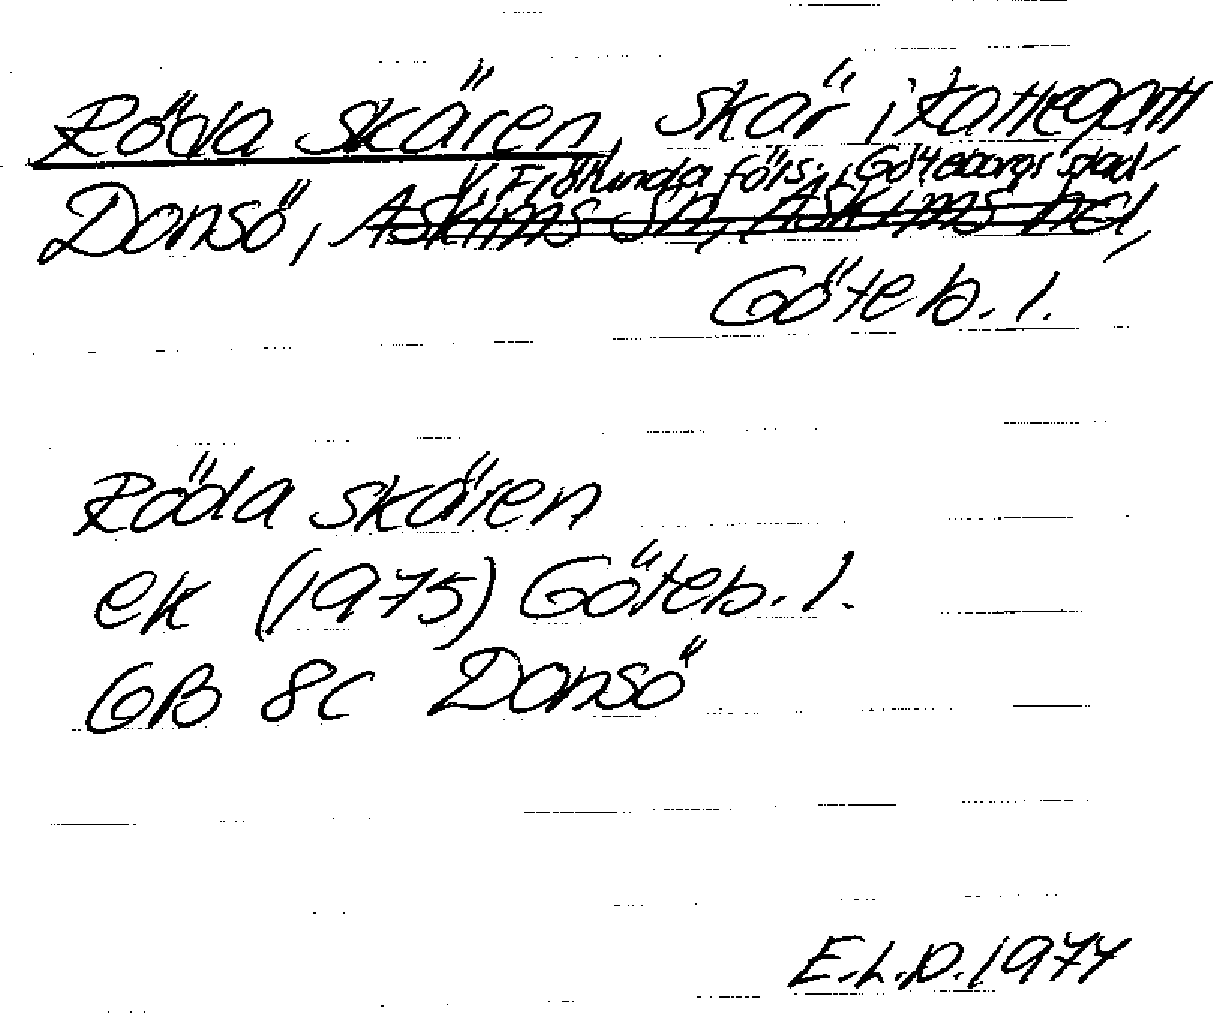 Röda skären, skär i Kattegatt
V. Frölunda förs., Göteborgs stad
Donsö, Askims sn, Askims hd,
Göteb. l.
Röda skären
ek (1975) Göteb. l.
GB 8c Donsö
E.L.D. 1977